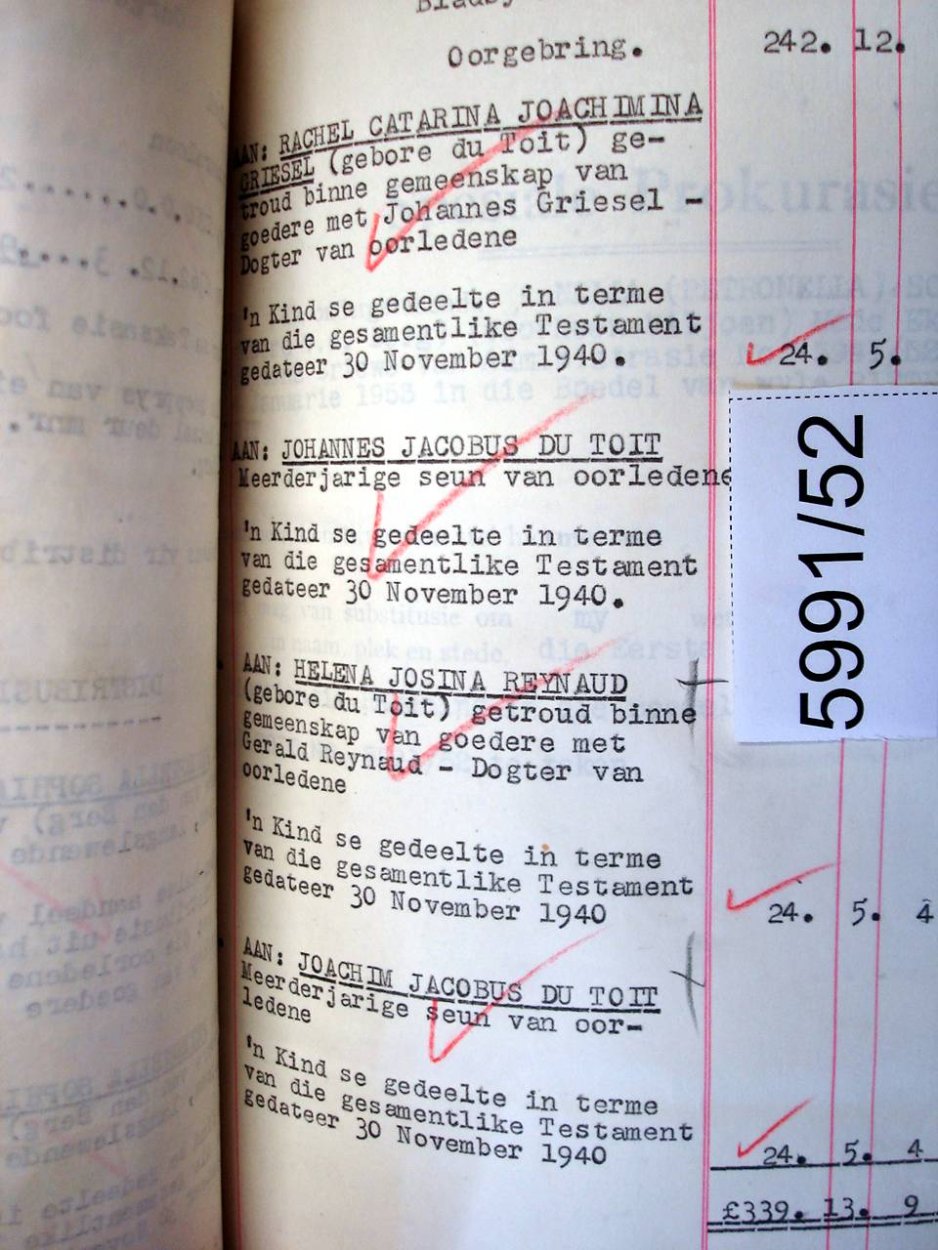 Oorgebring. 242. 12.
AAN: RACHEL CATARINA JOACHIMINA
GRIESEL (gebore du Toit) ge-
troud binne gemeenskap van
goedere met Johannes Griesel -
Dogter van oorledene
'n Kind se gedeelte in terme
van die gesamentlike Testament
gedateer 30 November 1940. 24. 5.
AAN: JOHANNES JACOBUS DU TOIT
Meerderjarige seun van oorledene
'n Kind se gedeelte in terme
van die gesamentlike Testament
gedateer 30 November 1940.
5991/52
AAN: HELENA JOSINA REYNAUD
(gebore du Toit) getroud binne
gemeenskap van goedere met
Gerald Reynaud - Dogter van
oorledene
'n Kind se gedeelte in terme
van die gesamentlike Testament
gedateer 30 November 1940 24. 5. 4
AAN: JOACHIM JACOBUS DU TOIT
Meerderjarige seun van oor-
ledene
'n Kind se gedeelte in terme
van die gesamentlike Testament
gedateer 30 November 1940 24. 5. 4
£339. 13. 9